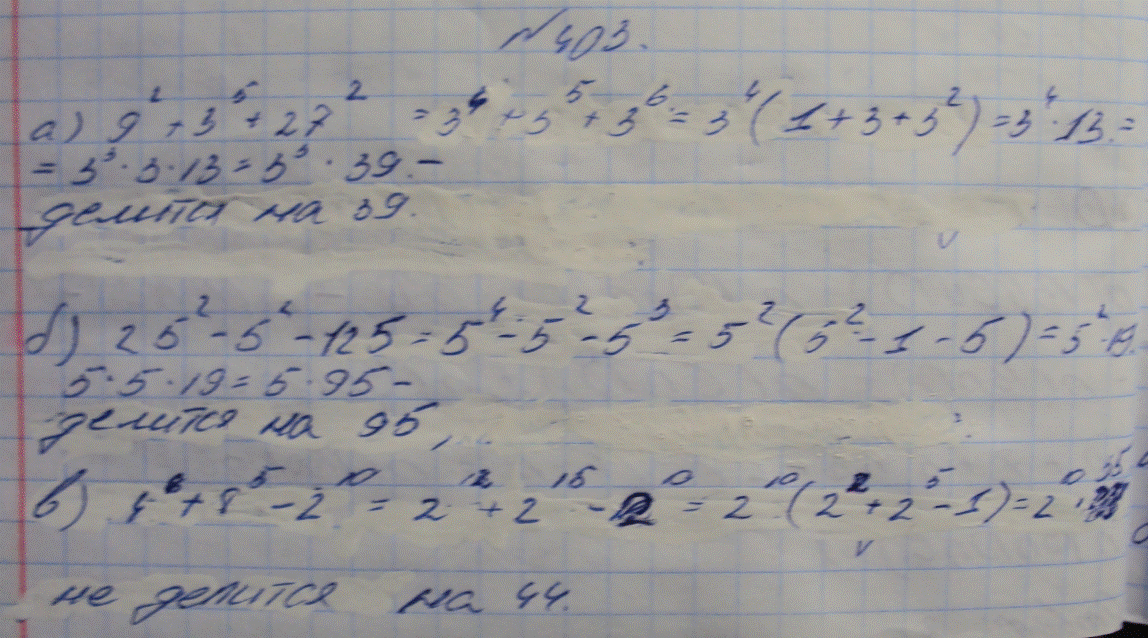 №403.
а) 9² + 3⁵ + 27² = 3⁴ + 3⁵ + 3⁶ = 3⁴(1 + 3 + 3²) = 3⁴·13 =
= 3³·3·13 = 3³·39 –
делится на 39.
б) 25² - 5² - 125 = 5⁴ - 5² - 5³ = 5²(5² - 1 - 5) = 5²·19.
5·5·19 = 5·95 –
делится на 95,
в) 4⁶ + 8⁵ - 2¹⁰ = 2¹² + 2¹⁵ - 2¹⁰ = 2¹⁰(2² + 2⁵ - 1) = 2¹⁰·35
не делится на 44.